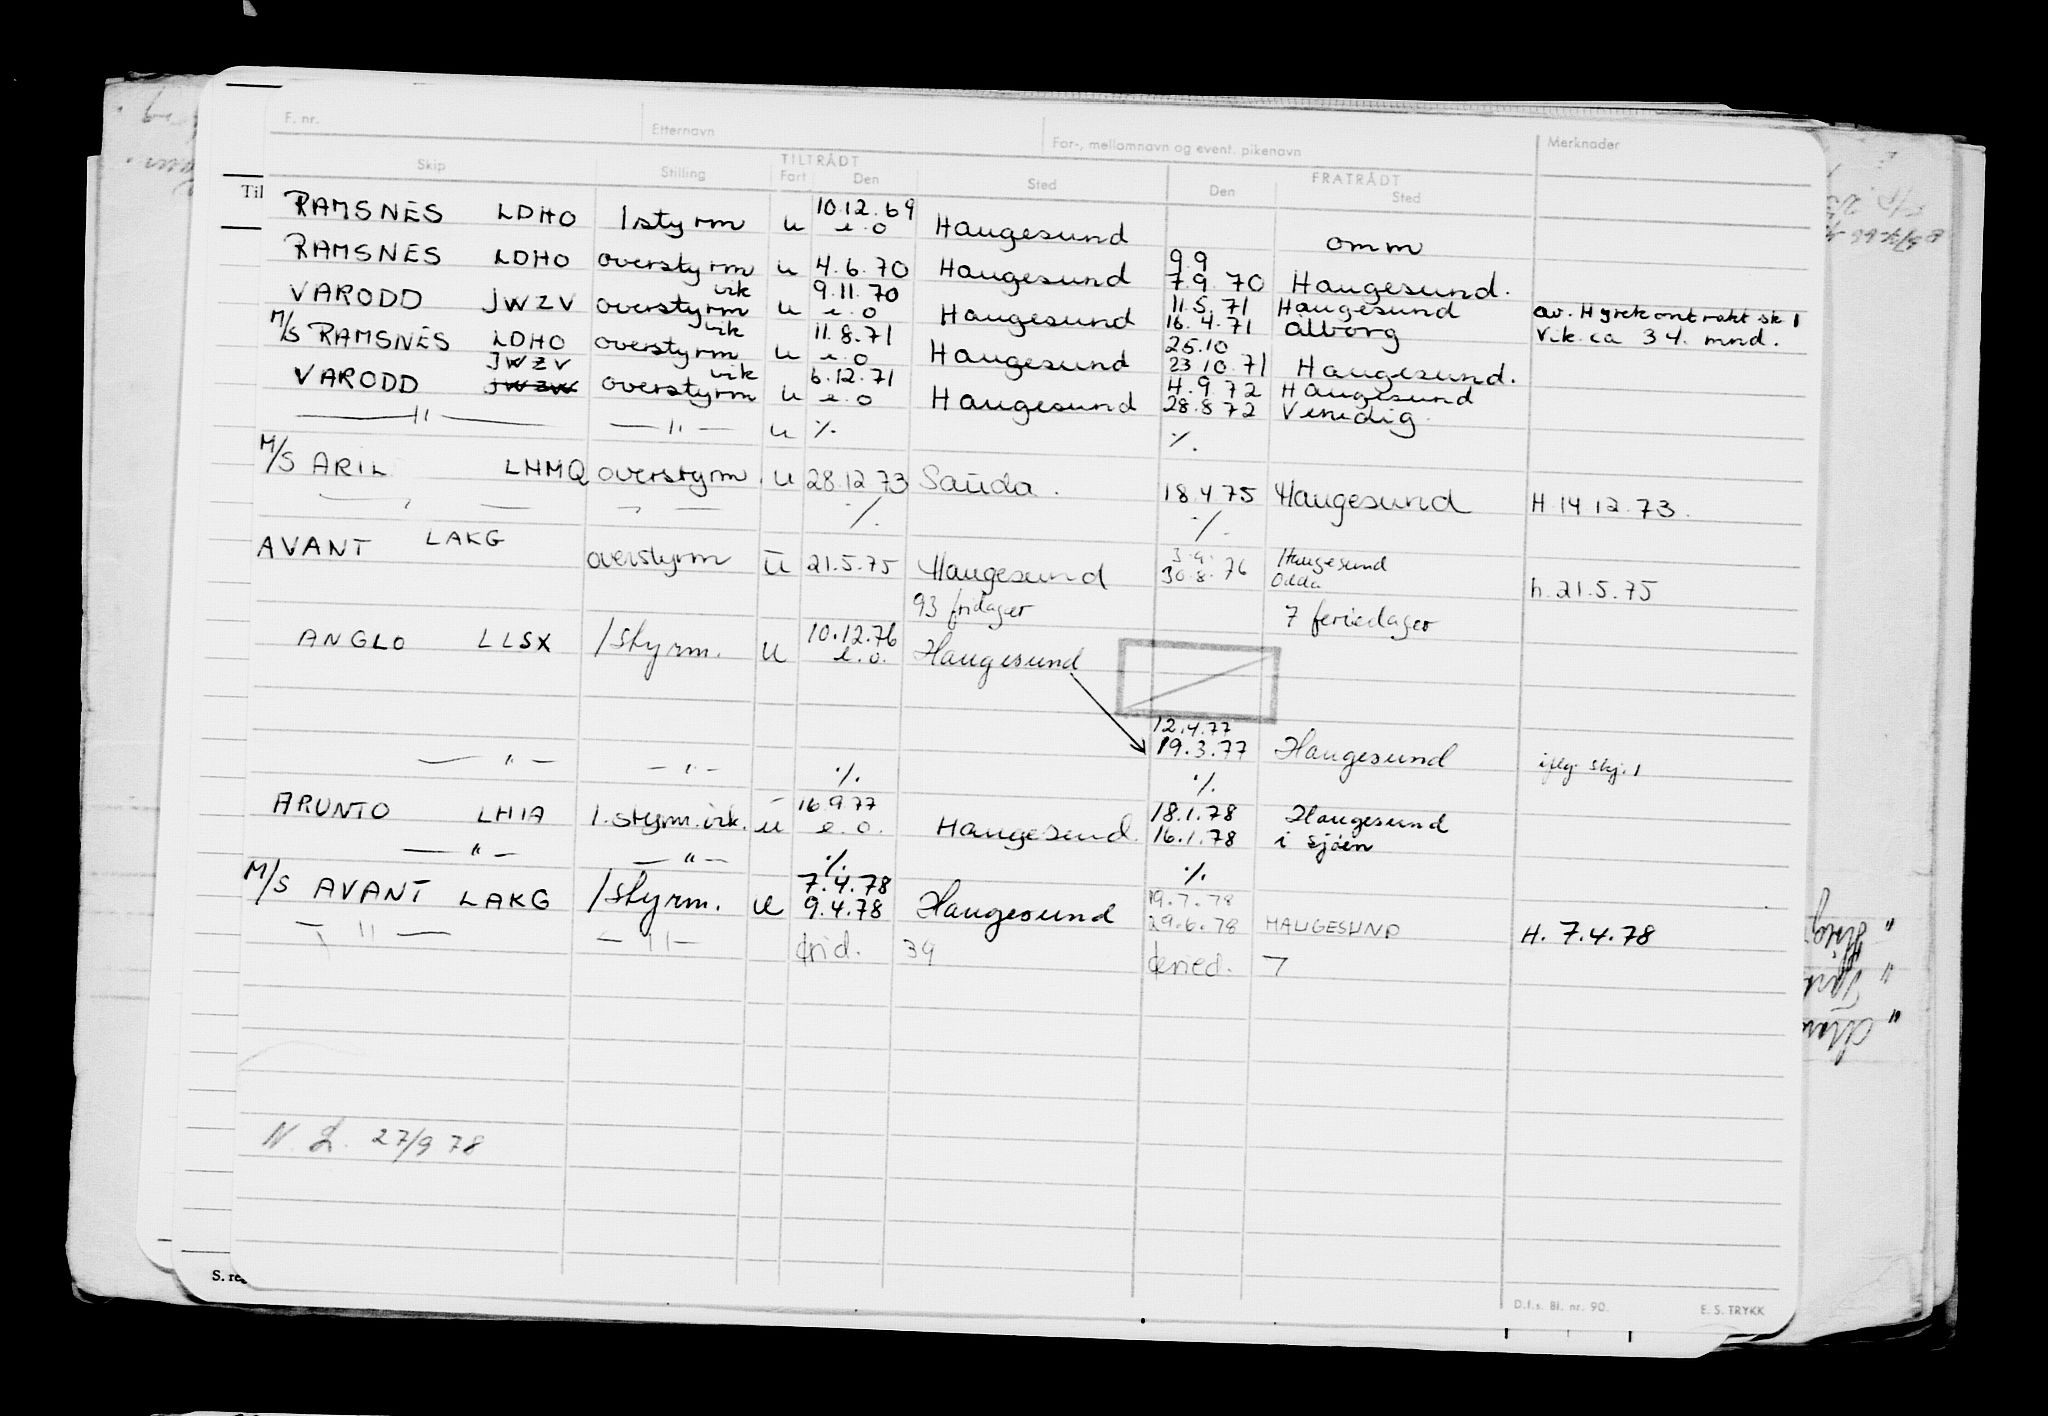 F. nr. Etternavn For-, mellomnavn og event. pikenavn Merknader
TILTRÅDT FRATRÅDT
Skip Stilling Fart Den Sted Den Sted
Til
10.12.69
RAMSNES LDHO 1styrm u e.o Haugesund omm
9.9
RAMSNES LDHO overstyrm u 4.6.70 Haugesund 7.9.70 Haugesund.
vik 9.11.70 11.5.71 Haugesund av. Hyrekontrakt sk 1
VARODD JWZV overstyrm u e.o Haugesund 16.4.71 ålborg Vik ca 3 4. mnd.
vik 11.8.71 25.10
M/S RAMSNES LDHO overstyrm u e.o Haugesund 23 10.71 Haugesund.
JWZV vik 6.12.71 4.9.72 Haugesund
VARODD JWZW overstyrm u e.o Haugesund 28.8.72 Venedig.
— " — — " — u ·/. ·/.
M/S ARIL LHMQ overstyrm. u 28.12.73 Sauda. 18.4.75 Haugesund H 14 12.73.
·/. ·/.
3.9. Haugesund
AVANT LAKG overstyrm u 21.5.75 Haugesund 30.8.76 Odda h. 21.5.75
93 fridager 7 feriedager
10.12.76
ANGLO LLSX 1styrm. u e.o. Haugesund
12.4.77
19.3.77 Haugesund iflg. skj. 1
— " — — " — ·/. ·/.
16.9.77 18.1.78 Haugesund
ARUNTO LHIA 1.styrm.vik. u e.o. Haugesund. 16.1.78 i sjøen
— " — — " — ·/. ·/.
7.4.78 19.7.78
M/S AVANT LAKG 1styrm. u 9.4.78 Haugesund 29.6.78 HAUGESUND H. 7.4.78
— " — — " — frid. 39 feried. 7
N. L. 27/9 78
S. re
D.f.s. Bl. nr. 90. E. S. TRYKK